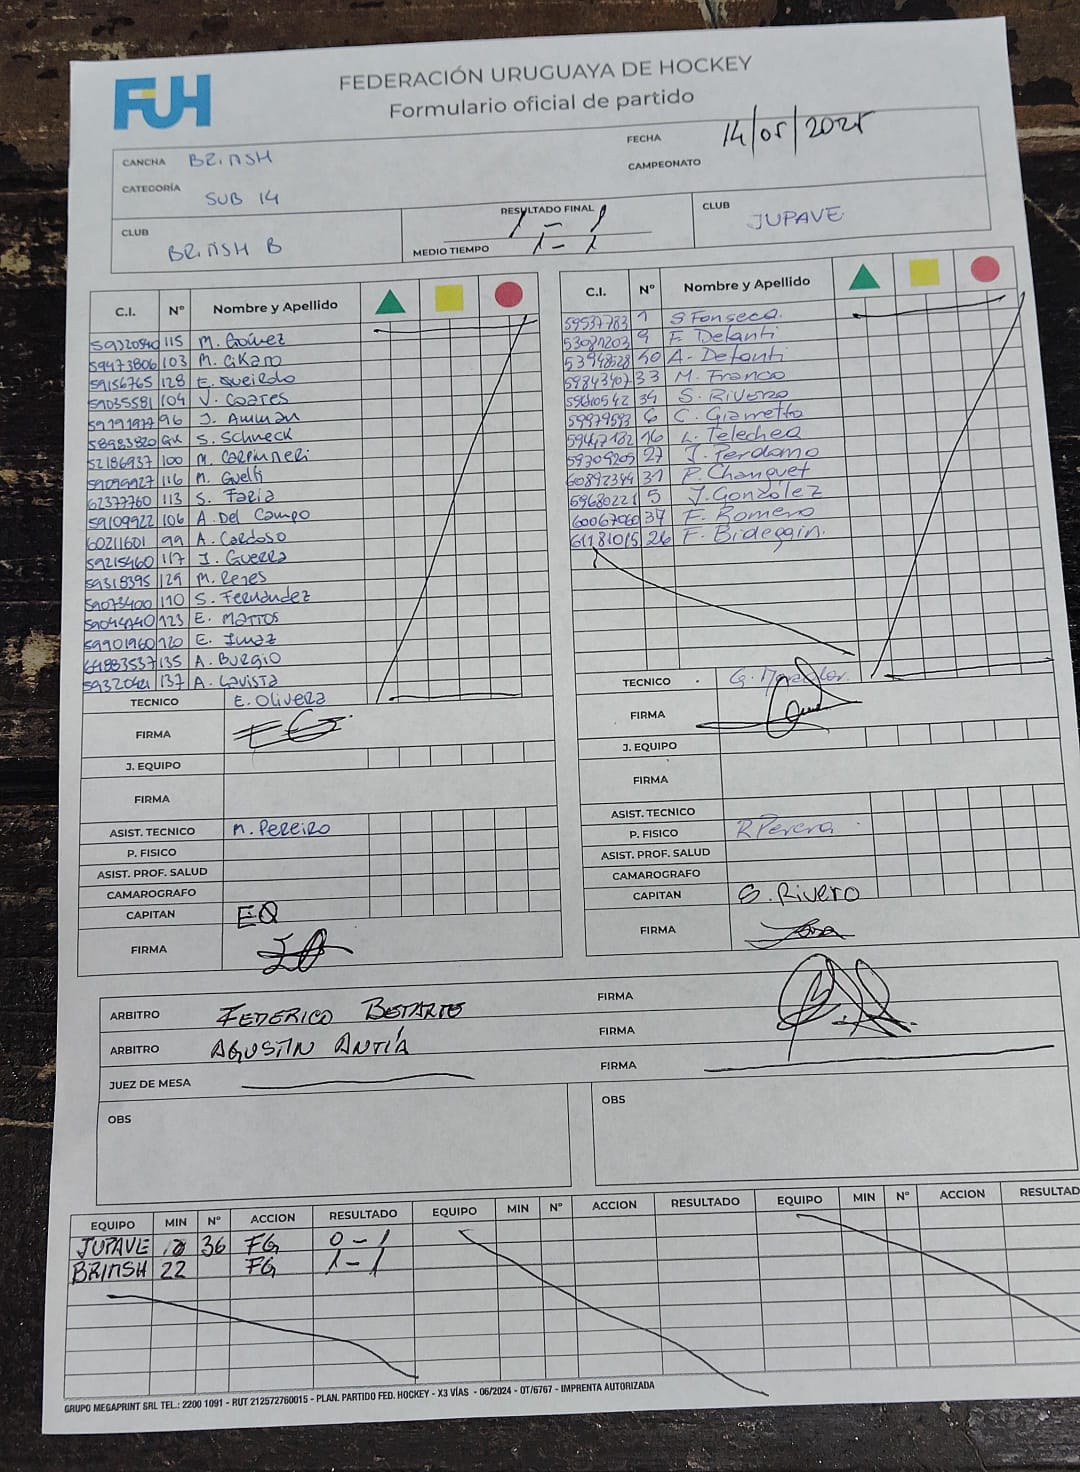 FUH
FEDERACIÓN URUGUAYA DE HOCKEY
Formulario oficial de partido
CANCHA BRITISH
FECHA 14/05/2025
CATEGORÍA SUB 14
CAMPEONATO
CLUB BRITISH B
RESULTADO FINAL 1 - 1
MEDIO TIEMPO 1 - 1
CLUB JUPAVE
C.I. Nº Nombre y Apellido
59320540 115 M. Gómez
59473806 103 M. Cikato
59156765 128 E. Queirolo
59035581 104 V. Coares
59191977 96 J. Amman
58983820 GK S. Schneck
52186937 100 M.
59099927 116 M. Guelfi
62377760 113 S. Faria
59109922 106 A. Del Campo
60211601 99 A. Cardoso
59215460 117 J. Guerra
59318395 129 M. Reyes
59073400 110 S. Fernandez
59044740 123 E. Mattos
59901960 120 E. Imaz
135 A. Burgio
137 A. Lavista
TECNICO E. Olivera
FIRMA
J. EQUIPO
FIRMA
ASIST. TECNICO M. Pereiro
P. FISICO
ASIST. PROF. SALUD
CAMAROGRAFO
CAPITAN EQ
FIRMA
C.I. Nº Nombre y Apellido
59537783 1 S Fonseca.
53081203 9 F. Detanti
40 A. Detanti
59843407 33 M. Franco
34 S. Rivero
59979593 6 C. Giametta
16 L. Telechea
59309205 27 J. Perdomo
60892394 31 P. Changuet
69680221 5 J. González
60067060 37 F. Romero
61181015 26 F. Bideggin.
TECNICO
FIRMA
J. EQUIPO
FIRMA
ASIST. TECNICO
P. FISICO R Perera
ASIST. PROF. SALUD
CAMAROGRAFO
CAPITAN S. Rivero
FIRMA
ARBITRO FEDERICO BETARTE FIRMA
ARBITRO AGUSTIN ANTÍA FIRMA
JUEZ DE MESA FIRMA
OBS OBS
EQUIPO MIN Nº ACCION RESULTADO EQUIPO MIN Nº ACCION RESULTADO EQUIPO MIN Nº ACCION RESULTAD
JUPAVE 36 FG 0 - 1
BRITISH 22 FG 1 - 1
GRUPO MEGAPRINT SRL TEL.: 2200 1091 - RUT 212572760015 - PLAN. PARTIDO FED. HOCKEY - X3 VÍAS - 06/2024 - OT/6767 - IMPRENTA AUTORIZADA